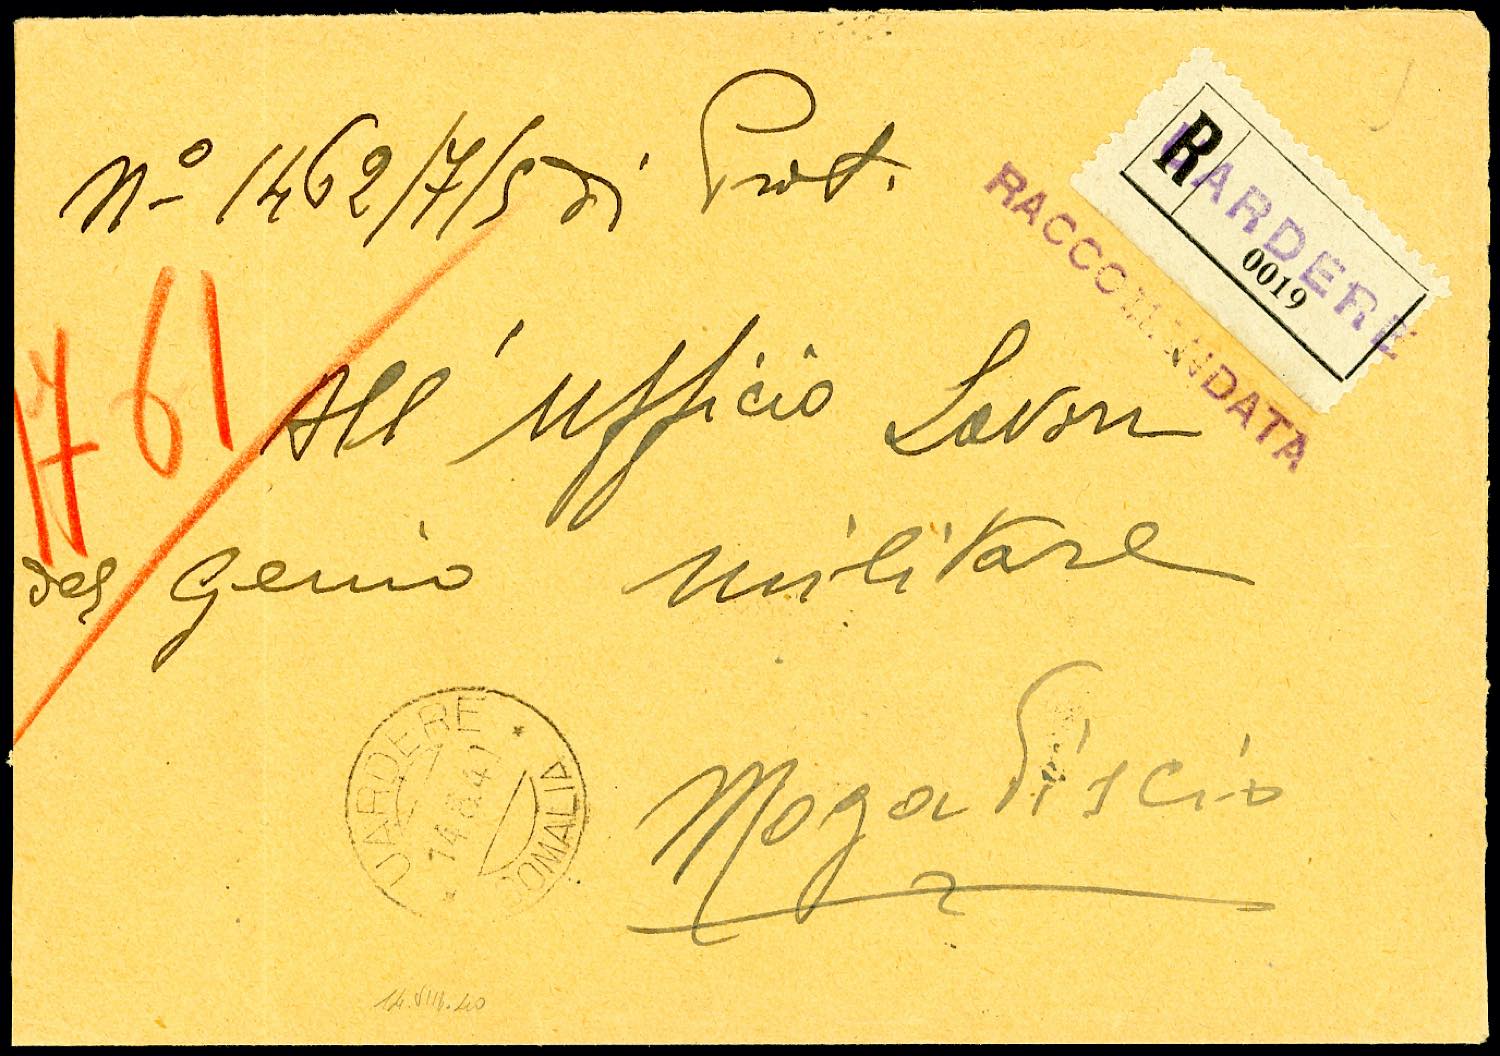 Nº 1462/7/5 di Prot.
R UARDERE
0019
RACCOMANDATA
1761
All'Ufficio Lavori
del Genio militare
UARDERE
14.8.40
SOMALIA
Mogadiscio
14.VIII.40